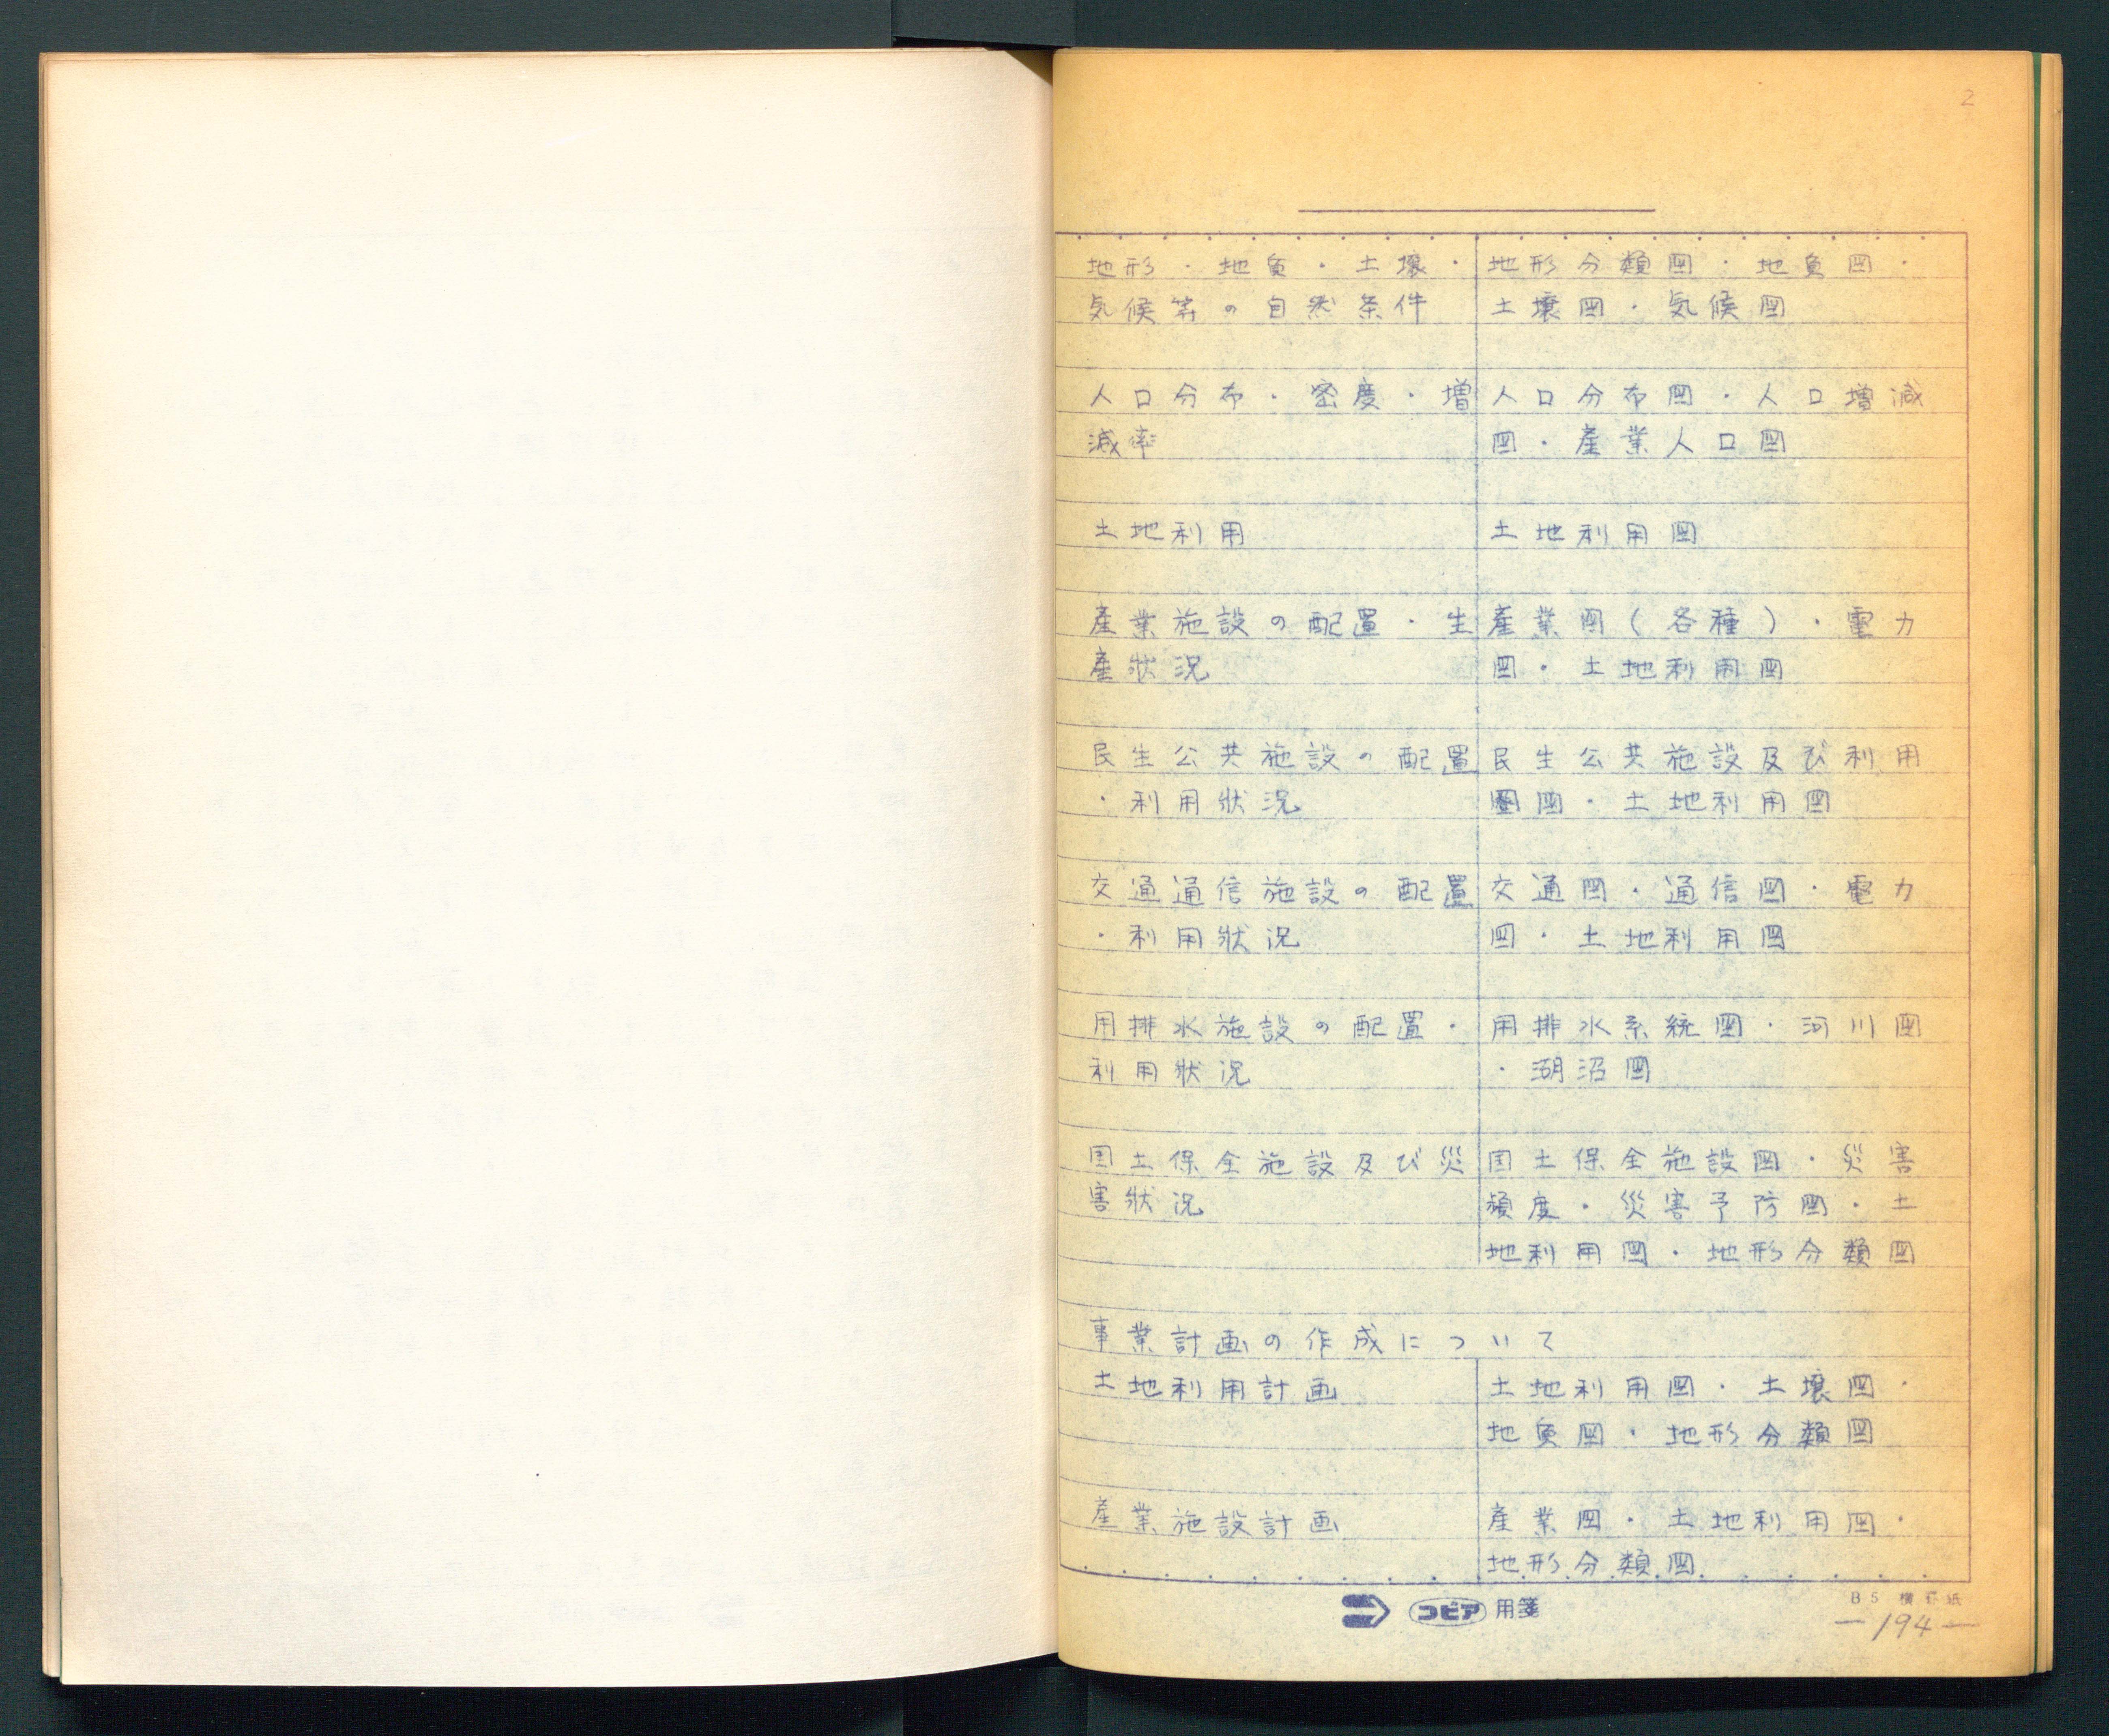 2
地形・地質・土壌・ 地形分類図・地質図・
気候等の自然条件 土壌図・気候図
人口分布・密度・増 人口分布図・人口増減
減率 図・産業人口図
土地利用 土地利用図
産業施設の配置・生 産業図(各種)・電力
産状況 図・土地利用図
民生公共施設の配置 民生公共施設及び利用
・利用状況 圏図・土地利用図
交通通信施設の配置 交通図・通信図・電力
・利用状況 図・土地利用図
用排水施設の配置・ 用排水系統図・河川図
利用状況 ・湖沼図
国土保全施設及び災 国土保全施設図・災害
害状況 頻度・災害予防図・土
地利用図・地形分類図
事業計画の作成について
土地利用計画 土地利用図・土壌図・
地質図・地形分類図
産業施設計画 産業図・土地利用図・
地形分類図
コピア用箋
B5 横罫紙
―194―